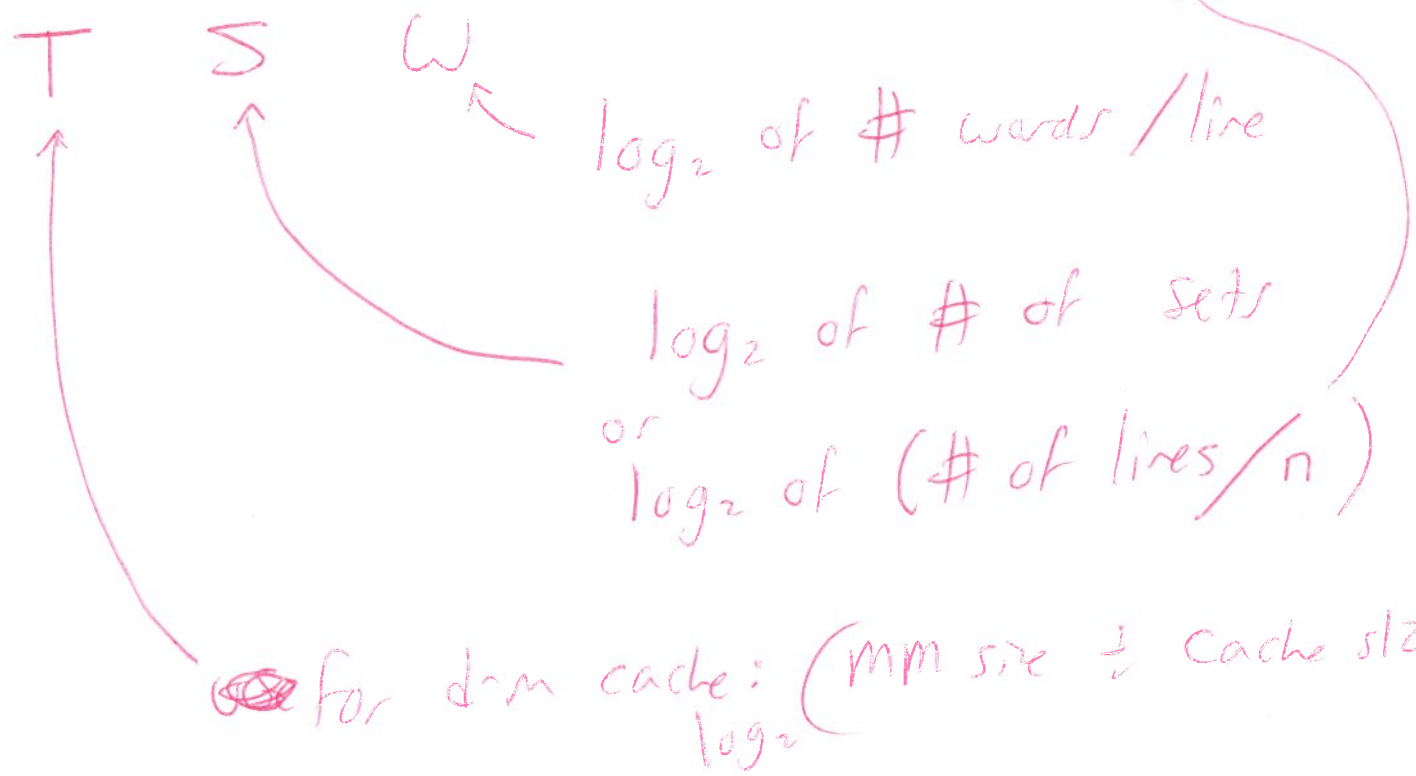 T S W
log₂ of # words/line
log₂ of # of sets
or
log₂ of (# of lines/n)
for d-m cache: (mm size ÷ cache siz
log₂